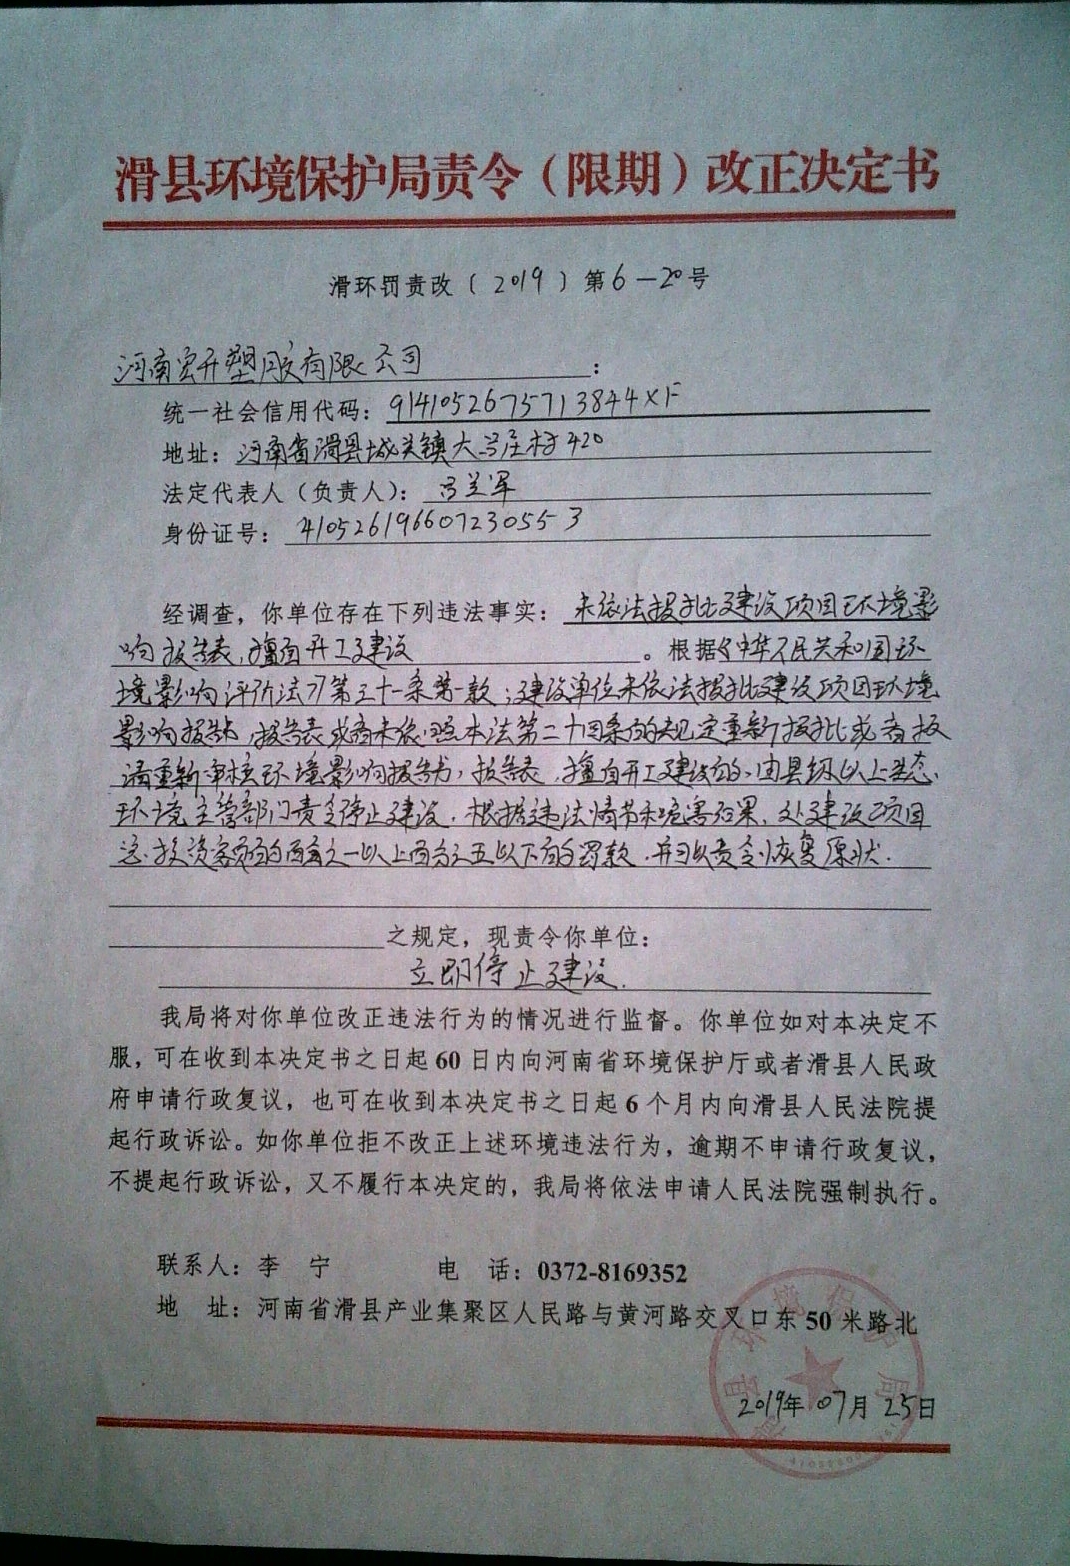 滑县环境保护局责令（限期）改正决定书
滑环罚责改〔2019〕第6-20号
河南宏升塑胶有限公司：
统一社会信用代码：9141052675713844XF
地址：河南省滑县城关镇大吕庄村420
法定代表人（负责人）：吕兰军
身份证号：410526196607230553
经调查，你单位存在下列违法事实：未依法报批建设项目环境影
响报告表，擅自开工建设。根据《中华人民共和国环
境影响评价法》第三十一条第一款：建设单位未依法报批建设项目环境
影响报告书、报告表或者未依照本法第二十四条的规定重新报批或者报
请重新审核环境影响报告书、报告表，擅自开工建设的，由县级以上生态
环境主管部门责令停止建设，根据违法情节和危害后果，处建设项目
总投资额的百分之一以上百分之五以下的罚款，并可以责令恢复原状。
之规定，现责令你单位：
立即停止建设.
我局将对你单位改正违法行为的情况进行监督。你单位如对本决定不
服，可在收到本决定书之日起60日内向河南省环境保护厅或者滑县人民政
府申请行政复议，也可在收到本决定书之日起6个月内向滑县人民法院提
起行政诉讼。如你单位拒不改正上述环境违法行为，逾期不申请行政复议，
不提起行政诉讼，又不履行本决定的，我局将依法申请人民法院强制执行。
联系人：李 宁 电 话：0372-8169352
地 址：河南省滑县产业集聚区人民路与黄河路交叉口东50米路北
滑县环境保护局
2019年07月25日